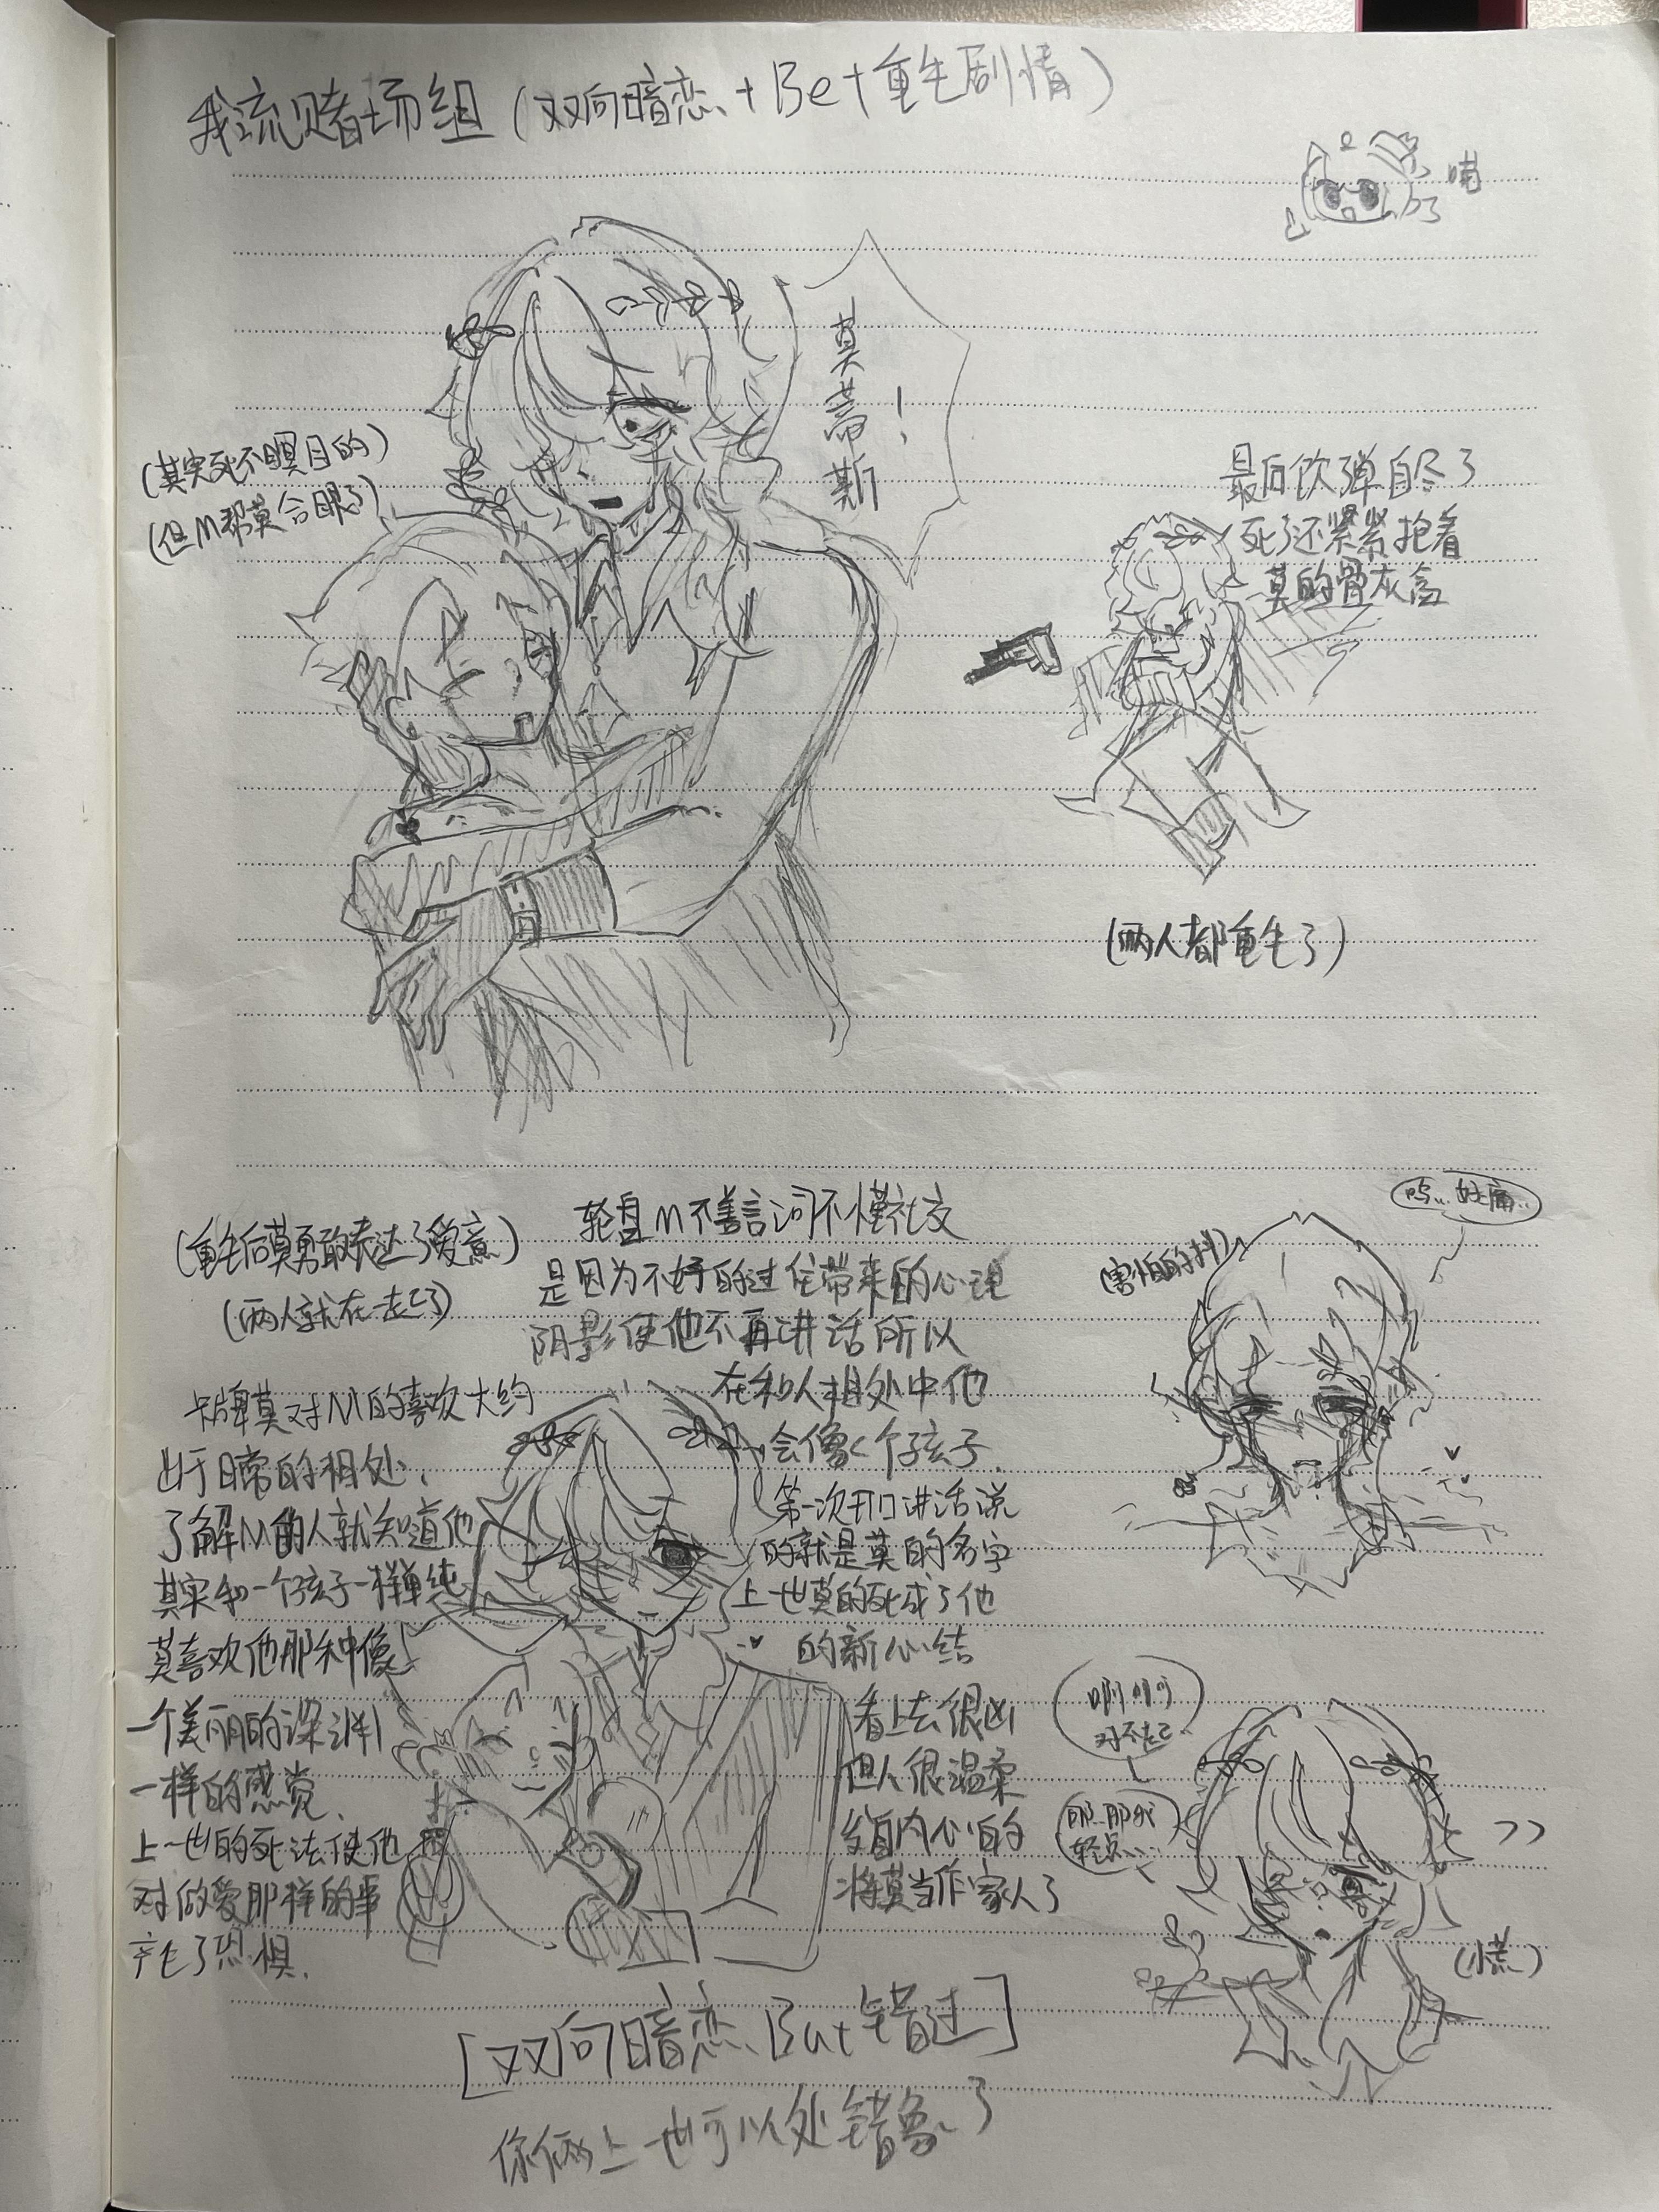 我流赌场组（双向暗恋+Be+重生剧情）
喃
莫蒂斯！
（其实死不瞑目的）
（但M帮莫合眼了）
最后饮弹自尽了
死了还紧紧抱着
莫的骨灰盒
（两人都重生了）
（重生后莫勇敢表达了爱意）
（两人就在一起了）
轮盘M不善言词不懂社交
是因为不好的过往带来的心理
阴影使他不再讲话所以
在和人相处中他
会像个孩子
第一次开口讲话说
的就是莫的名字
上一世莫的死成了他
的新心结
看上去很凶
但人很温柔
发自内心的
将莫当作家人了
卡牌莫对M的喜欢大约
出于日常的相处、
了解M的人就知道他
其实和一个孩子一样单纯
莫喜欢他那种像
一个美丽的深渊
一样的感觉、
上一世的死法使他
对做爱那样的事
产生了恐惧.
呜...好痛..
（害怕的抖）
啊啊啊
对不起
那..那我
轻点...
（慌）
[双向暗恋、But错过]
你俩上一世可以处错象了